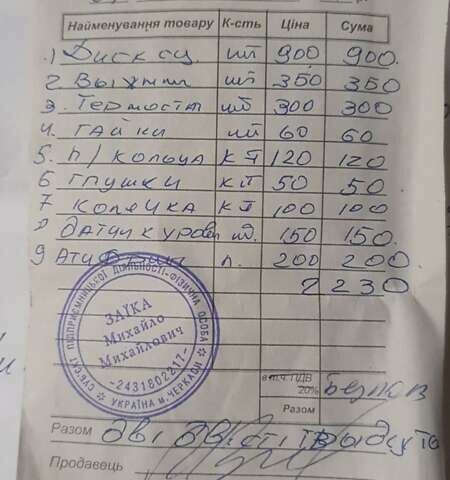 Найменування товару К-сть Ціна Сума
1 Диск сц. шт 900 900.
2. Выжим шт 350 350
3. Термостат шт 300 300
4. гайки шт 60 60
5. п/кольца к-т 120 120
6 глушки к-т 50 50
7 колячка к-т 100 100
8 датчик уровн шт. 150 150.
9 л. 200 200
2 230
СУБ'ЄКТ ПІДПРИЄМНИЦЬКОЇ ДІЯЛЬНОСТІ-ФІЗИЧНА ОСОБА
ЗАЇКА
Михайло
Михайлович
-2431802217-
УКРАЇНА м. ЧЕРКАСИ
в т.ч. ПДВ
20%
Без ПДВ
Разом
Разом Дві
Продавець